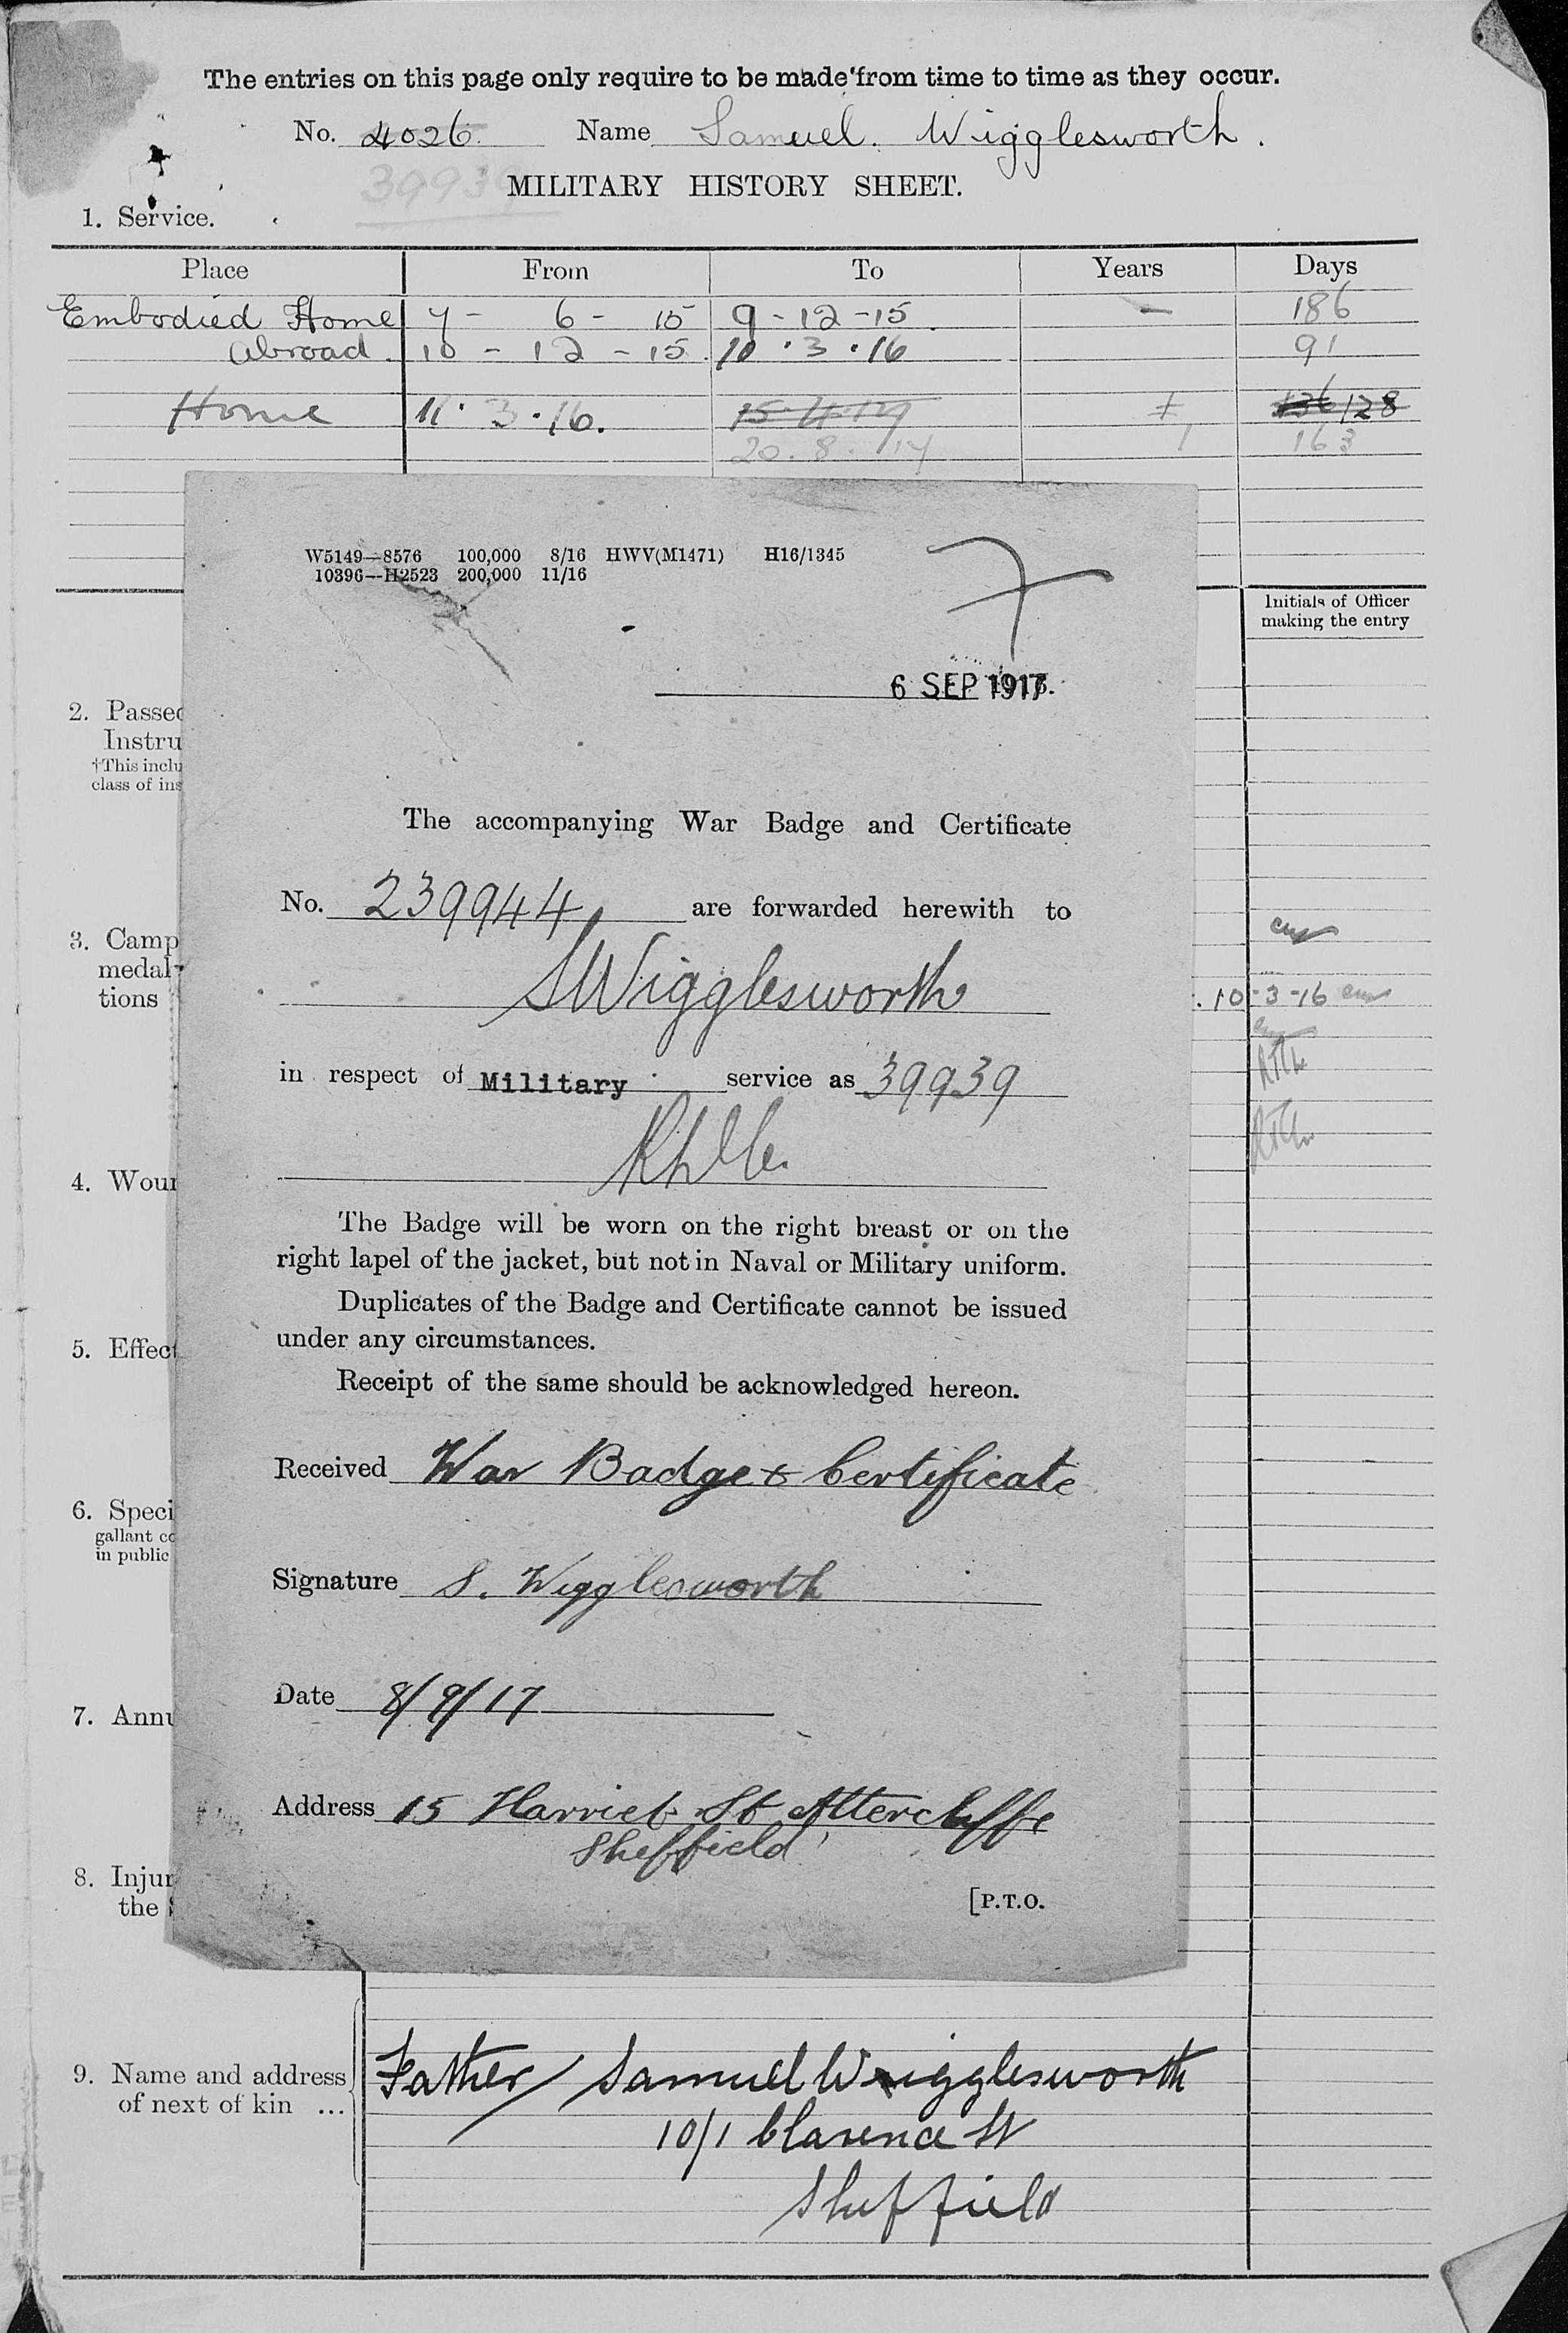 The entries on this page only require to be made from time to time as they occur.
No. 4026 Name Samuel. Wigglesworth.
39939
MILITARY HISTORY SHEET.
1. Service.
Place From To Years Days
Embodied Home 7 - 6 - 15 9 - 12 - 15. — 186
Abroad. 10 - 12 - 15. 10 . 3 . 16 91
Home 11 . 3 . 16. 128
20 . 8 . 17 1 163
W5149—8576 100,000 8/16 HWV(M1471) H16/1345
10396—H2523 200,000 11/16
Initials of Officer
making the entry
6 SEP 1917
2. Passed
Instru
†This inclu
class of ins
The accompanying War Badge and Certificate
No. 239944 are forwarded herewith to
3. Camp
medal
tions
S Wigglesworth
. 10 - 3 - 16
in respect of Military service as 39939
4. Woun
The Badge will be worn on the right breast or on the
right lapel of the jacket, but not in Naval or Military uniform.
Duplicates of the Badge and Certificate cannot be issued
under any circumstances.
5. Effect
Receipt of the same should be acknowledged hereon.
Received War Badge & Certificate
6. Speci
gallant co
in public
Signature S. Wigglesworth
Date 8/9/17
7. Annu
Address 15 Harriet St Attercliffe
Sheffield
8. Injur
the
[P.T.O.
9. Name and address
of next of kin ...
Father / Samuel Wigglesworth
10/1 Clarence St
Sheffield